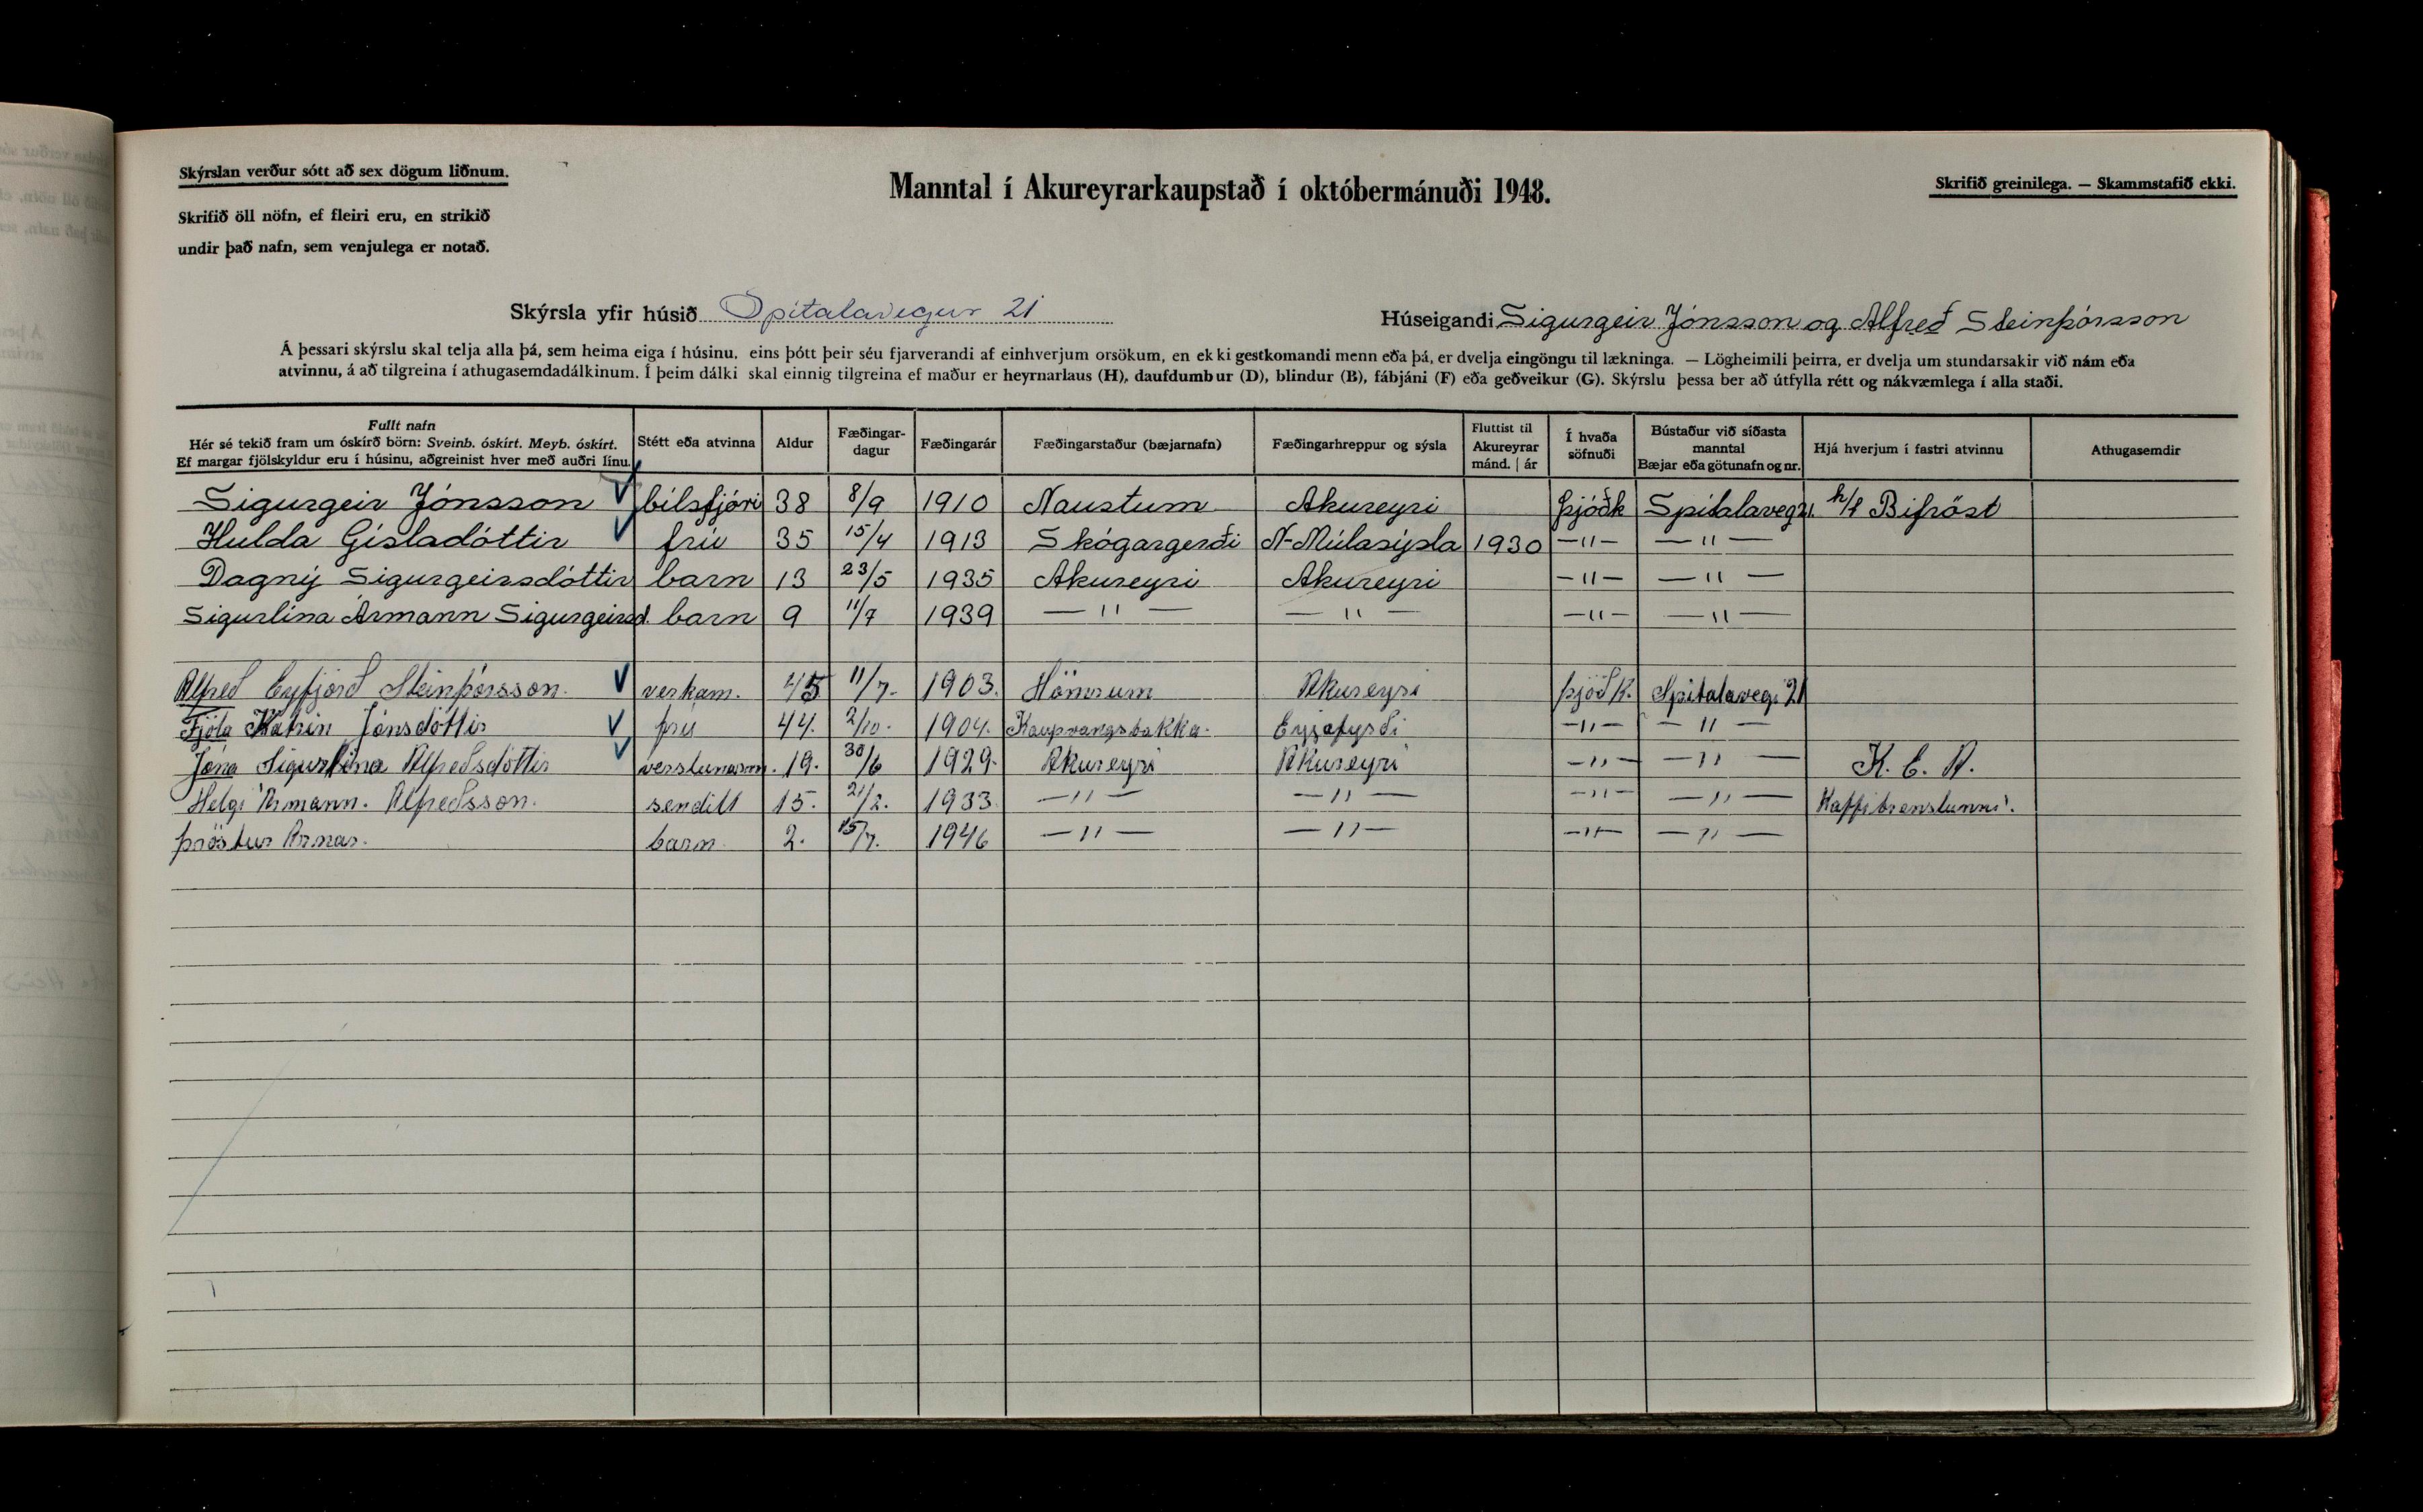 Skýrslan verður sótt að sex dögum liðnum.
Manntal í Akureyrarkaupstað í októbermánuði 1948.
Skrifið greinilega. — Skammstafið ekki.
Skrifið öll nöfn, ef fleiri eru, en strikið
undir það nafn, sem venjulega er notað.
Skýrsla yfir húsið Spítalavegur 21
Húseigandi Sigurgeir Jónsson og Alfreð Steinþórsson
Á þessari skýrslu skal telja alla þá, sem heima eiga í húsinu, eins þótt þeir séu fjarverandi af einhverjum orsökum, en ekki gestkomandi menn eða þá, er dvelja eingöngu til lækninga. — Lögheimili þeirra, er dvelja um stundarsakir við nám eða
atvinnu, á að tilgreina í athugasemdadálkinum. Í þeim dálki skal einnig tilgreina ef maður er heyrnarlaus (H), daufdumbur (D), blindur (B), fábjáni (F) eða geðveikur (G). Skýrslu þessa ber að útfylla rétt og nákvæmlega í alla staði.
Fullt nafn
Hér sé tekið fram um óskírð börn: Sveinb. óskírt. Meyb. óskírt.
Ef margar fjölskyldur eru í húsinu, aðgreinist hver með auðri línu.
Stétt eða atvinna
Aldur
Fæðingar-
dagur
Fæðingarár
Fæðingarstaður (bæjarnafn)
Fæðingarhreppur og sýsla
Fluttist til
Akureyrar
mánd. | ár
Í hvaða
söfnuði
Bústaður við síðasta
manntal
Bæjar eða götunafn og nr.
Hjá hverjum í fastri atvinnu
Athugasemdir
Sigurgeir Jónsson bílstjóri 38 8/9 1910 Naustum Akureyri þjóðk Spítalaveg 21. h/f Bifröst
Hulda Gísladóttir frú 35 15/4 1913 Skógargerði N-Múlasýsla 1930 —"— —"—
Dagný Sigurgeirsdóttir barn 13 23/5 1935 Akureyri Akureyri —"— —"—
Sigurlína Ármann Sigurgeirsd. barn 9 11/7 1939 —"— —"— —"— —"—
Alfreð Eyfjörð Steinþórsson. verkam. 45 11/7. 1903. Hömrum Akureyri þjóðk. Spítalaveg. 21
Fjóla Katrín Jónsdóttir frú 44. 2/10. 1904. Kaupvangsbakka. Eyjafyrði —"— —"—
Jóna Sigurlína Alfreðsdóttir verslunarm. 19. 30/6 1929. Akureyri Akureyri —"— —"— K. E. A.
Helgi Ármann. Alfreðsson. sendill 15. 21/2. 1933. —"— —"— —"— —"— Kaffibrenslunni.
Þröstur Arnar. barn 2. 15/7. 1946 —"— —"— —"— —"—